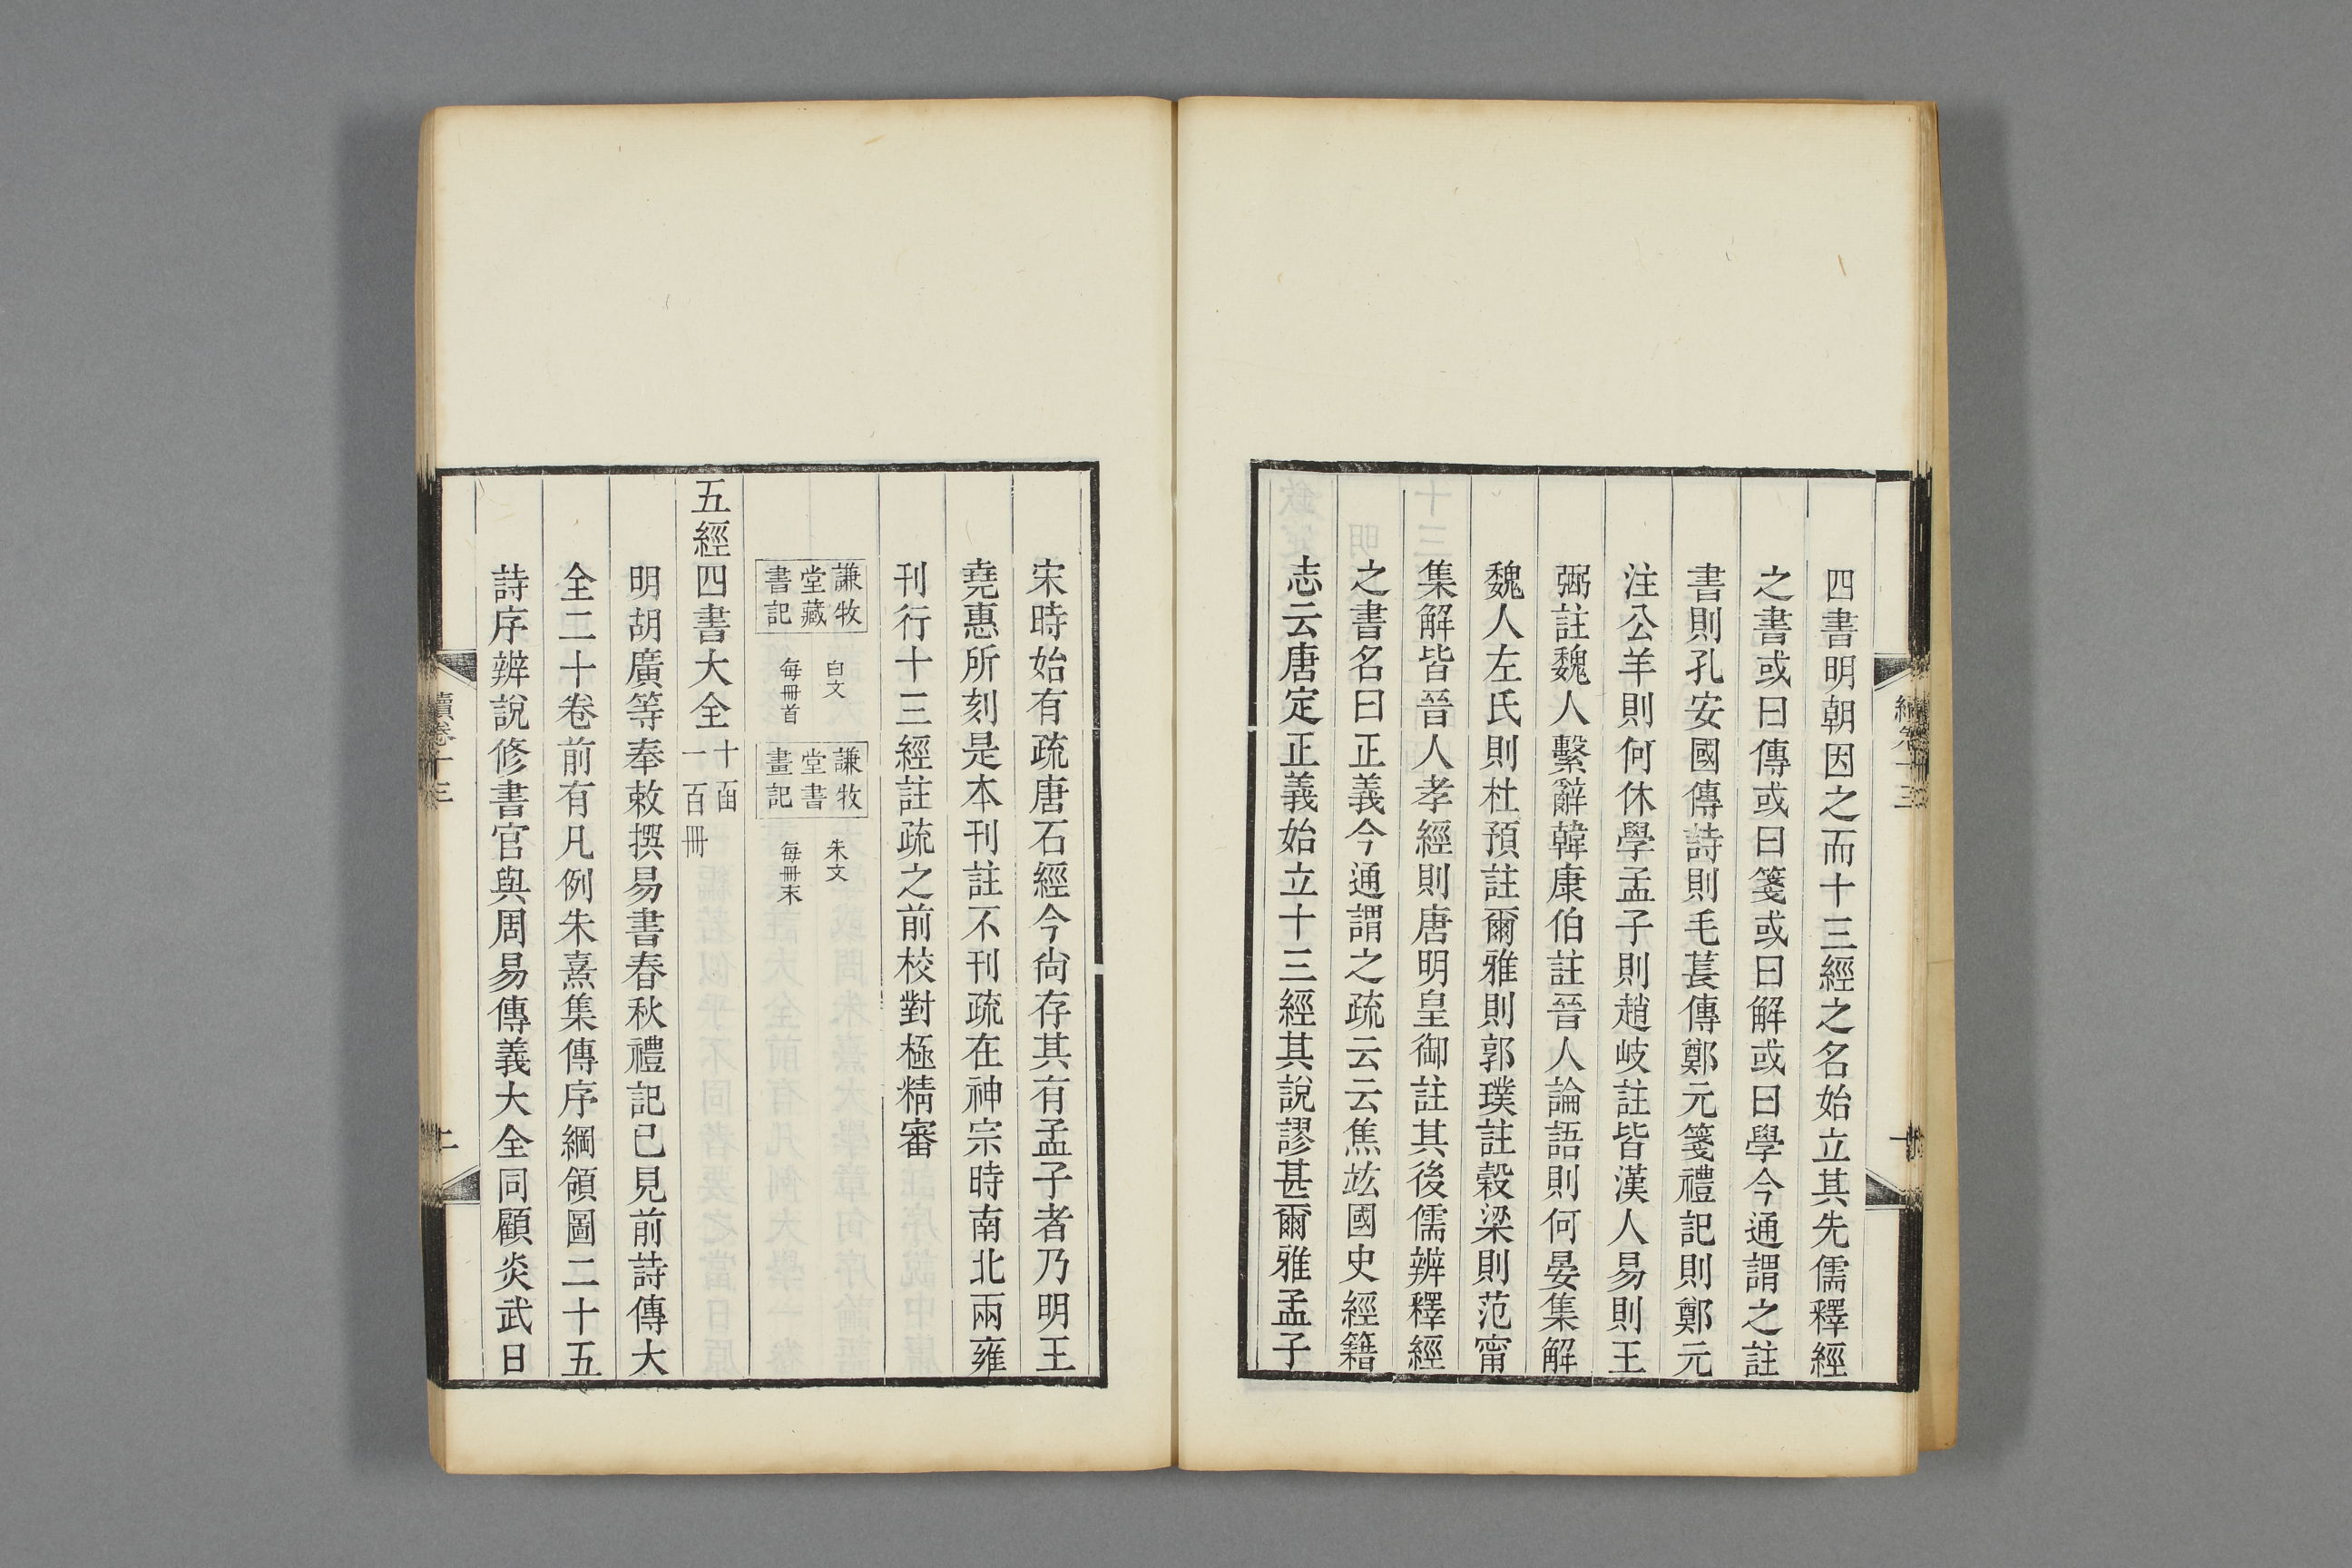 四書明朝因之而十三經之名始立其先儒釋經
之書或曰傳或曰箋或曰解或曰學今通謂之註
書則孔安國傳詩則毛萇傳鄭元箋禮記則鄭元
注公羊則何休學孟子則趙岐註皆漢人易則王
弼註魏人繫辭韓康伯註晉人論語則何晏集解
魏人左氏則杜預註爾雅則郭璞註穀梁則范甯
集解皆晉人孝經則唐明皇御註其後儒辨釋經
之書名曰正義今通謂之疏云云焦竑國史經籍
志云唐定正義始立十三經其說謬甚爾雅孟子
宋時始有疏唐石經今尙存其有孟子者乃明王
堯惠所刻是本刊註不刊疏在神宗時南北兩雍
刊行十三經註疏之前校對極精審
謙牧
堂藏
書記
白文
每冊首
謙牧
堂書
畫記
朱文
每冊末
五經四書大全
十函
一百冊
明胡廣等奉敕撰易書春秋禮記已見前詩傳大
全二十卷前有凡例朱熹集傳序綱領圖二十五
詩序辨說修書官與周易傳義大全同顧炎武日
續卷十三
二